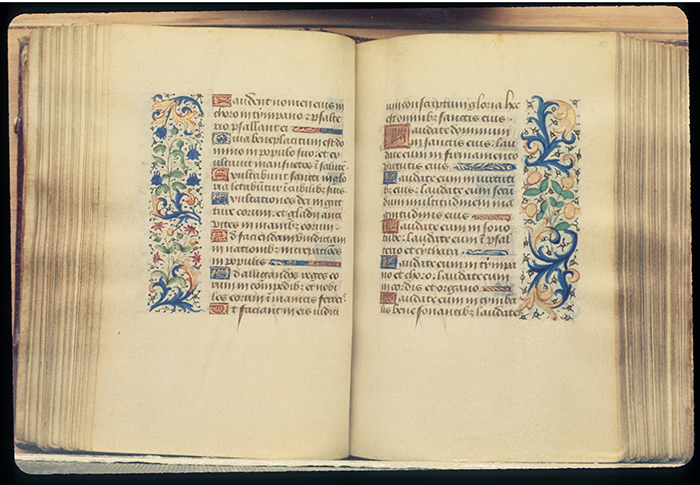 Laudent nomen eius in
choro in tympano ⁊ psalte
rio psallant ei
Quia beneplacitum est do
mino in populo suo: et ex
altavit mansuetos ĩ salutẽ
Exultabunt sancti in glo
ria letabũtur ĩ cubilib⁊ suis
Exultationes dei in gut
ture eorum: et gladii anci
pites in manib⁊ eorum.
Ad faciendam vindictam
in nationib⁊ increpationes
in populis
Ad alligandos reges eo
rum in compedib⁊ et nobi
les eorum ĩ manicis ferreis
Ut faciant in eis iudici
um conscriptum gloria hec
est omnib⁊ sanctis eius.
Laudate dominum
in sanctis eius: lau
date eum in firmamento
virtutis eius
Laudate eum in virtuti
b⁊ eius: laudate eum secũ
dum multitudinem ma
gnitudinis eius
Laudate eum in sono
tube: laudate eum ĩ psal
terio et cithara
Laudate eum in timpa
no et choro: laudate eum
in cordis et organo.
Laudate eum in cimba
lis bene sonantib⁊ laudate